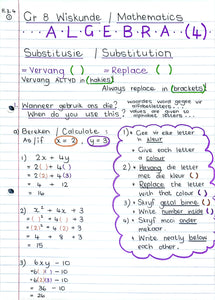 Gr 8 Wiskunde / Mathematics
ALGEBRA (4)
Substitusie / Substitution
= Vervang ( ) = Replace ( )
Vervang ALTYD in hakies!
Always replace in brackets!
Wanneer gebruik ons die?
When do you use this?
waardes word gegee vir
alfabetletters...
values are given to
alphabet letters...
a) Bereken / Calculate :
As / if x = 2, y = 3
1) 2x + 4y
= 2( ) + 4( )
= 2(2) + 4(3)
= 4 + 12
= 16
2) x² + 4x + 3
= ( )² + 4( ) + 3
= (2)² + 4(2) + 3
= 4 + 8 + 3
= 15
3) 6xy - 10
= 6( )( ) - 10
= 6(2)(3) - 10
= 36 - 10
= 26
1) Gee vir elke letter
'n kleur
Give each letter
a colour
2) Vervang die letter
met die kleur ( )
Replace the letter
with that colour ( )
3) Skryf getal binne ( )
Write number inside ( )
4) Skryf mooi onder
mekaar
Write neatly below
each other.